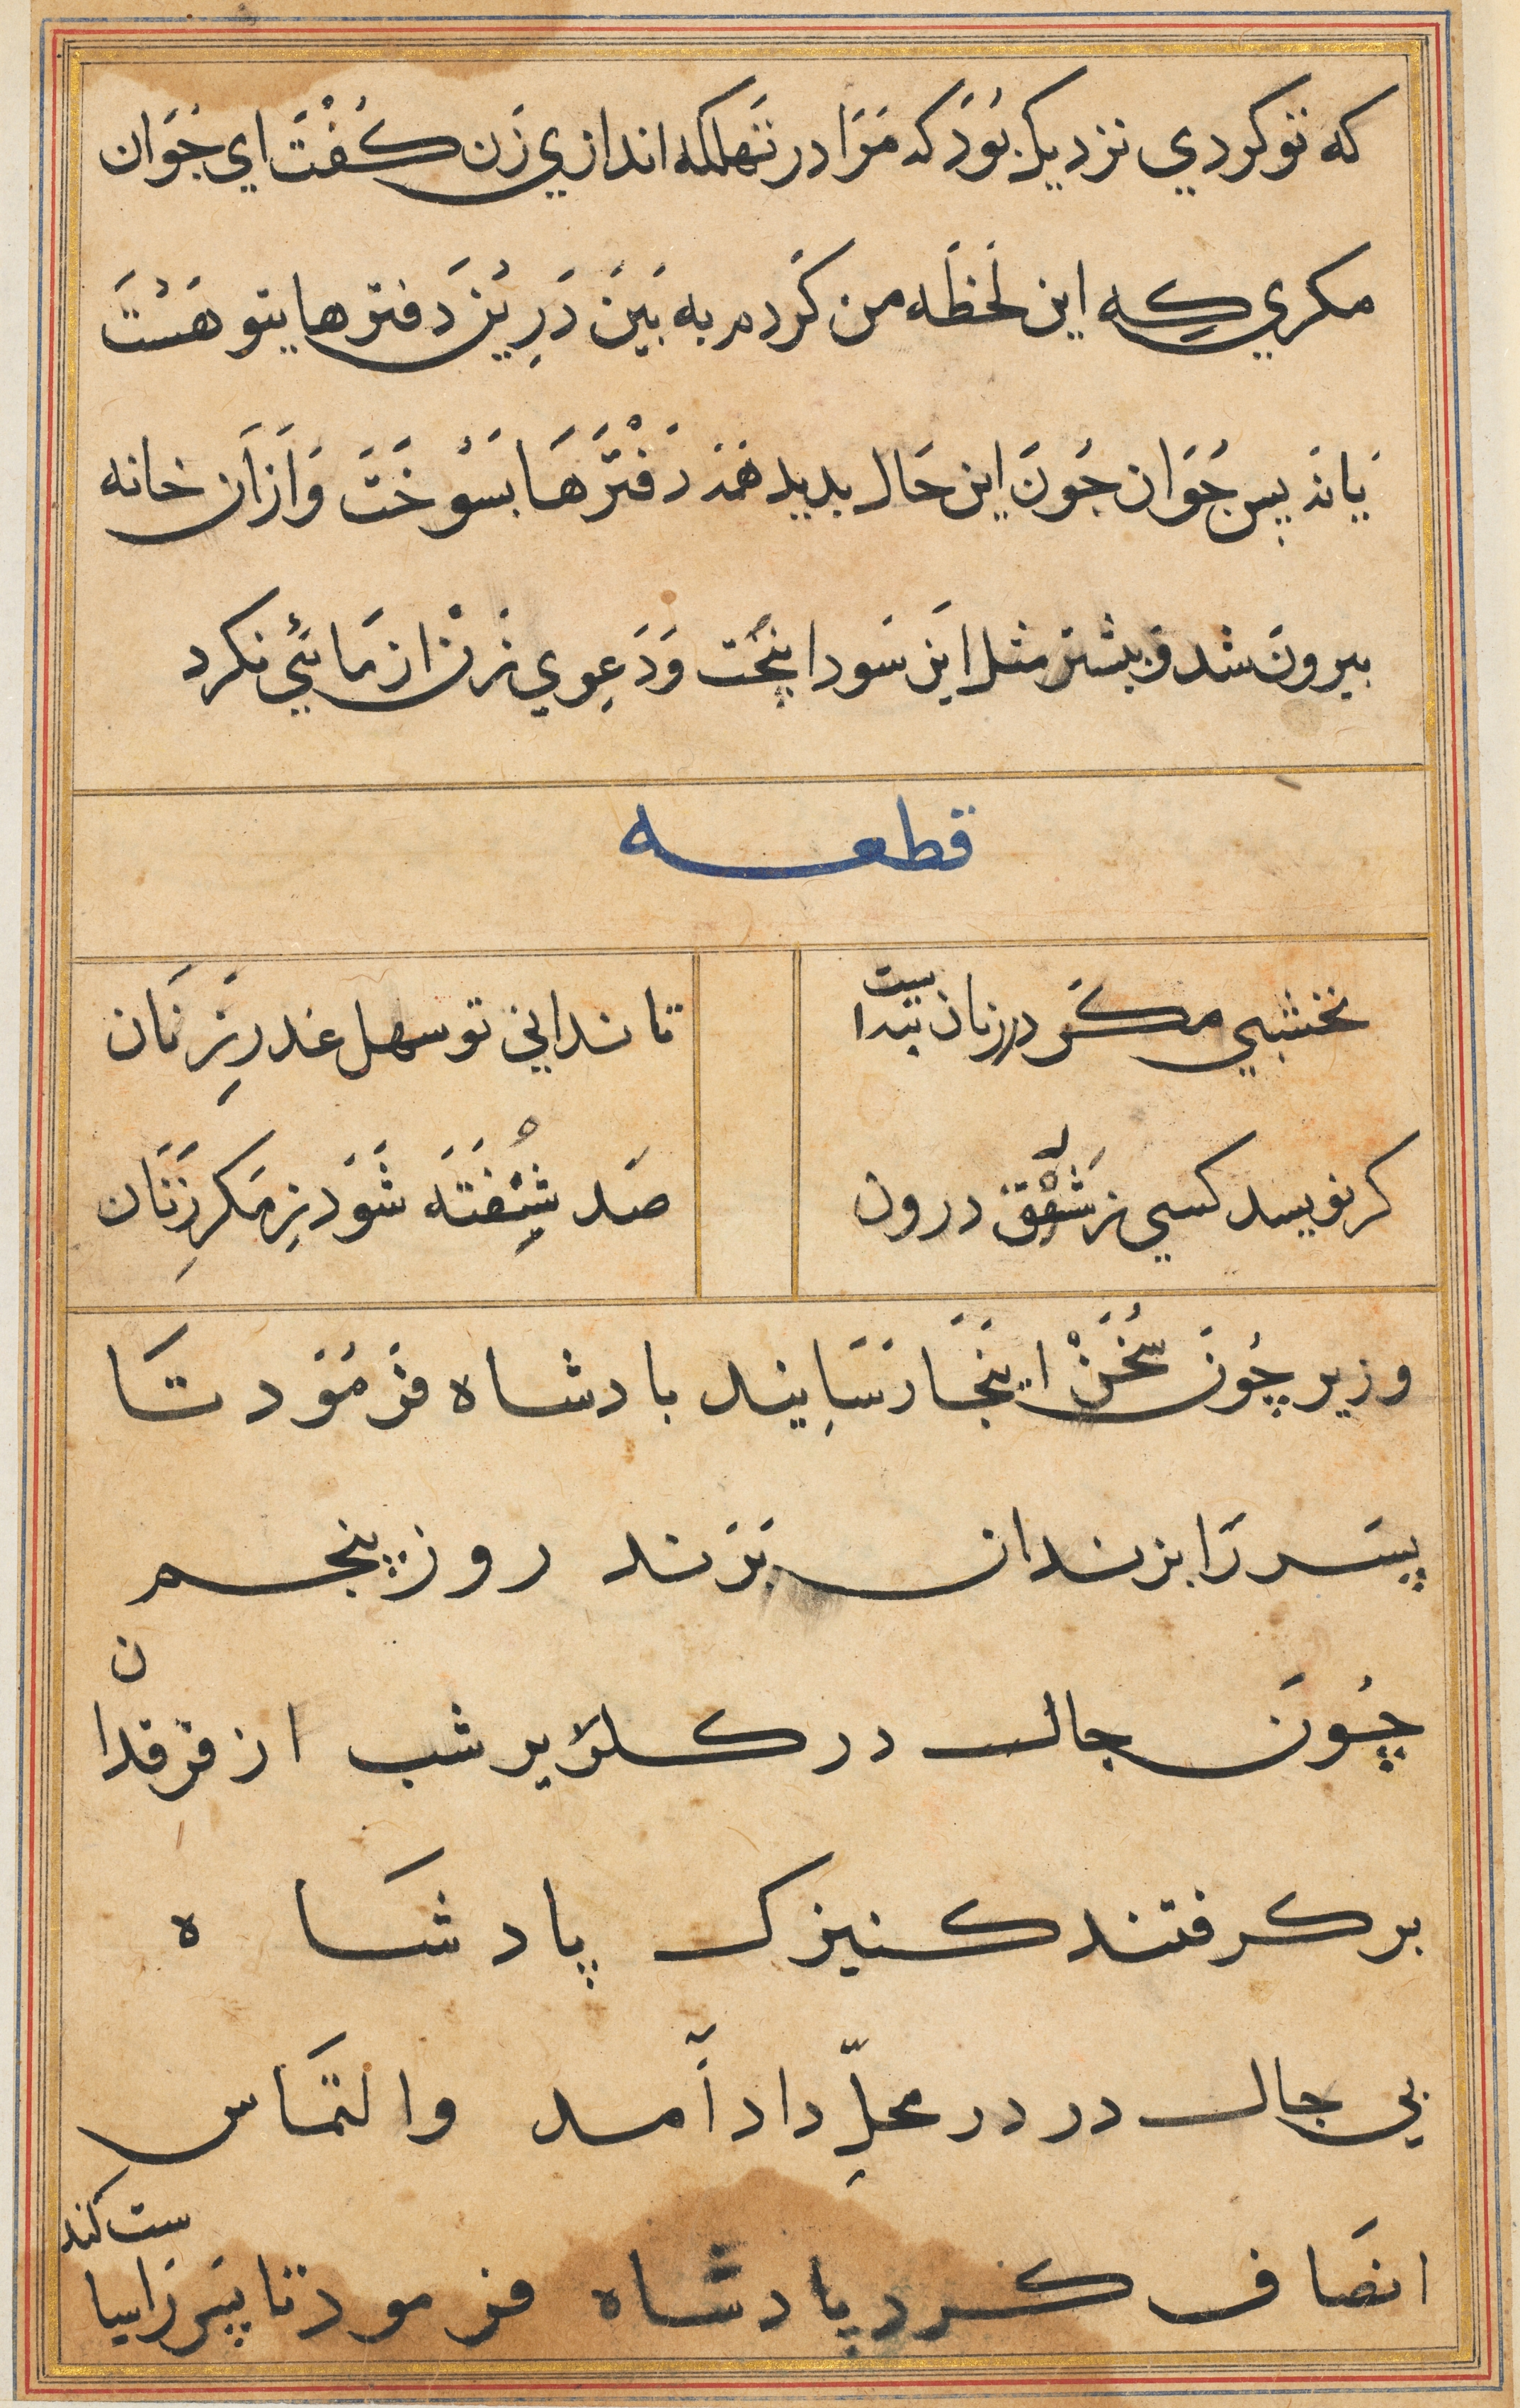 که تو کردي نزدیک بُوَد که مَرَا در تَهلکه اندازي زَن کُفْتَ اي جَوَان
مکري که این لَحظَه من کَردم به بَینَ دَرِیْن دَفترها یتو هَسْتَ
یَا نَه بِس جَوَان جَونَ این حَال بدید هَمَه دَفْتَرهَا بسَوْخَتَ وَ اَزاَن خانه
بیرونَ شد وَ بیشتر مثل اَین سَودا بپُخت وَ دَعِوي زَنْ ازمَائي نکرد
قطعه
نخشبي مکَر در زنان بیدا ست
تا نداني تو سهل غدرِ زنَان
کر نویسد کسي ز شَفْقَ درون
صَد شِیْفتَه شَوَد زِ مَکرِ زَنَان
وزیر چُونَ سُخَنْ اینجَا رَسَایند بادشاه فَرمُوْد تَا
پسَر رَا بزندان بَرَند روز پنجم
چُونَ جال در کلریر شب از فرقدان
بر کرفتند کنیزک پادشَاه
بي جال در در محلِّ داد آمد والتمَاسِ
انصَاف کرد پادشَاه فرمود تا پسَر رَا سیاست کند